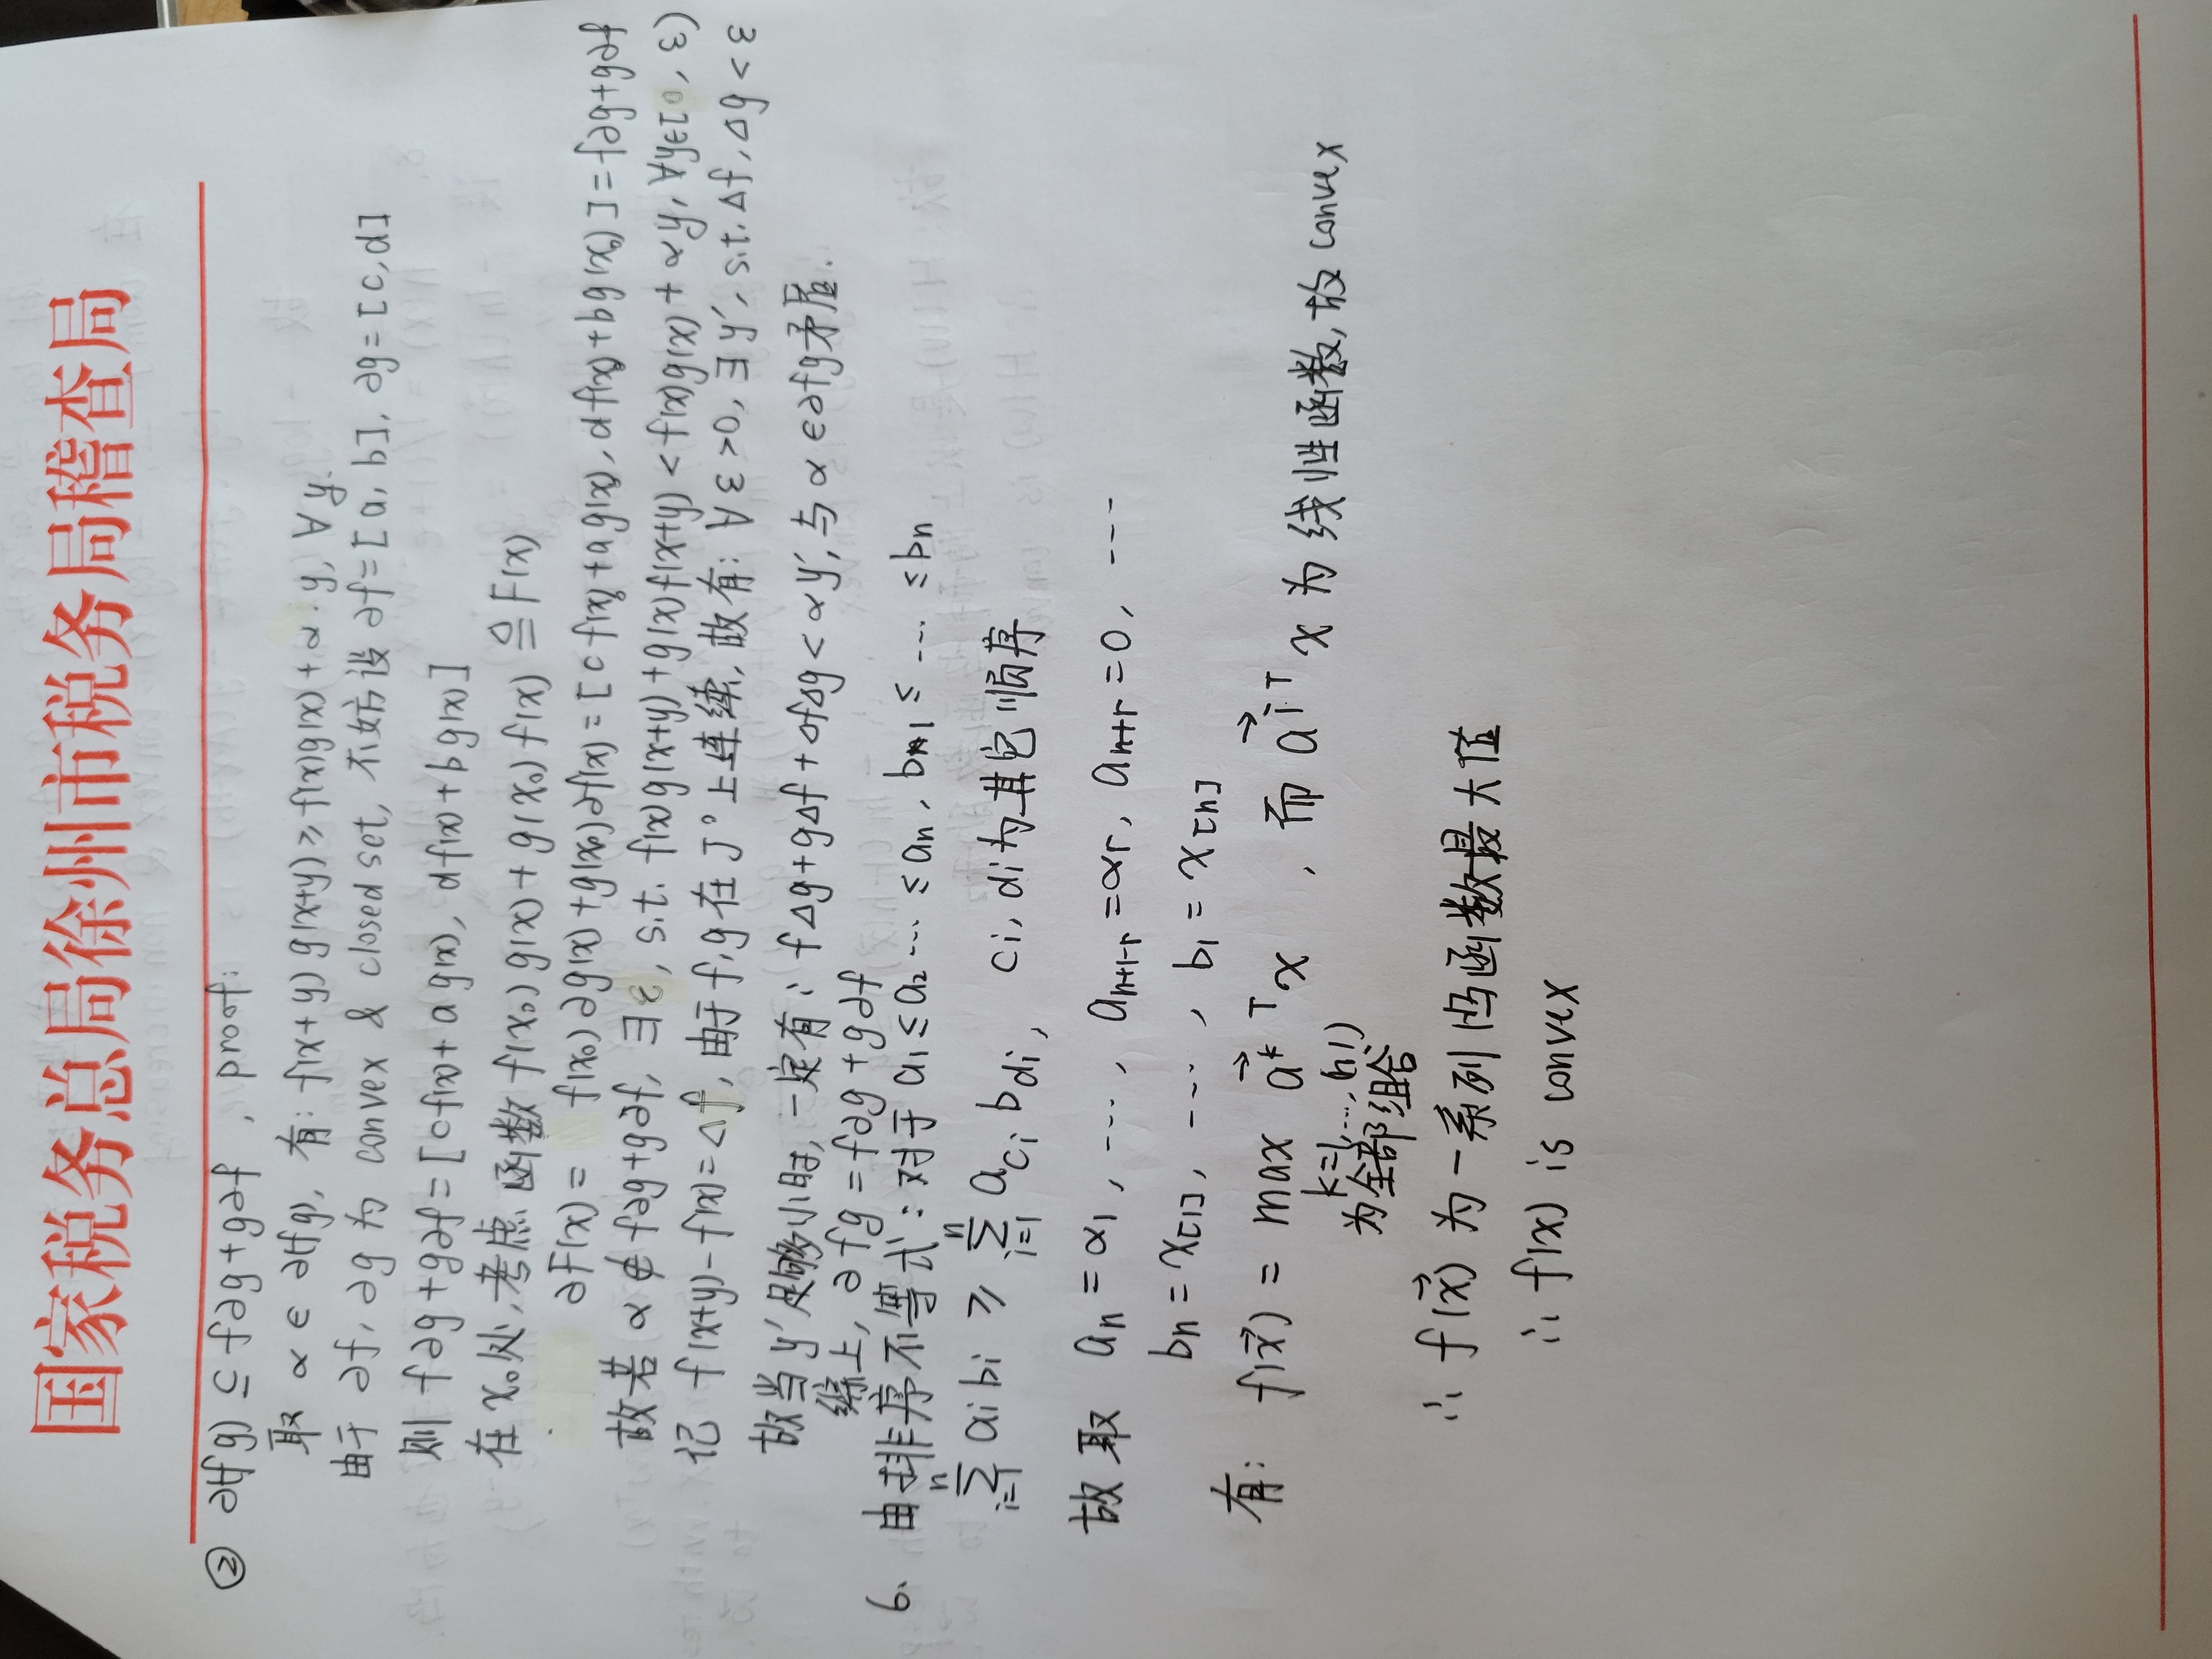 国家税务总局徐州市税务局稽查局
② ∂(fg) ⊆ f∂g+g∂f , proof:
取 α ∈ ∂(fg), 有: f(x+y) g(x+y) ≥ f(x)g(x) + α·y, ∀y.
由于 ∂f, ∂g 为 convex & closed set, 不妨设 ∂f=[a, b], ∂g=[c,d]
则 f∂g+g∂f = [cf(x)+a g(x), df(x)+b g(x)]
在 x₀处,考虑 函数 f(x₀) g(x) + g(x₀) f(x) ≜ F(x)
∂F(x) = f(x₀) ∂g(x) + g(x₀) ∂f(x) = [c f(x₀)+a g(x₀), d f(x₀)+b g(x₀)] = f∂g+g∂f
故若 α ∉ f∂g+g∂f, ∃ε, s.t. f(x)g(x+y) + g(x)f(x+y) < f(x)g(x) + αy, ∀y∈[0, ε)
记 f(x+y)-f(x)=Δf, 由于 f,g 在 J° 上连续, 故有: ∀ε>0, ∃y′, s.t. Δf, Δg < ε
故当 y′足够小时, 一定有: fΔg+gΔf+ΔfΔg < αy′, 与 α∈∂fg矛盾.
综上, ∂fg = f∂g + g∂f
6. 由排序不等式: 对于 a₁ ≤ a₂ ··· ≤ aₙ, b₁ ≤ ··· ≤ bₙ
∑ᵢ₌₁ⁿ aᵢ bᵢ ≥ ∑ᵢ₌₁ⁿ a_{cᵢ} b_{dᵢ}, cᵢ, dᵢ为其它顺序
故取 aₙ = α₁, ···, aₙ₊₁₋ᵣ = αᵣ, aₙ₊ᵣ = 0, ---
bₙ = x[1], ···, b₁ = x[n]
有: f(x⃗) = max a⃗ᵏᵀx , 而 a⃗ⁱᵀx 为线性函数, 故 convex
k=1,…,(n!)
为全部组合
∴ f(x⃗) 为一系列凸函数最大值
∴ f(x) is convex